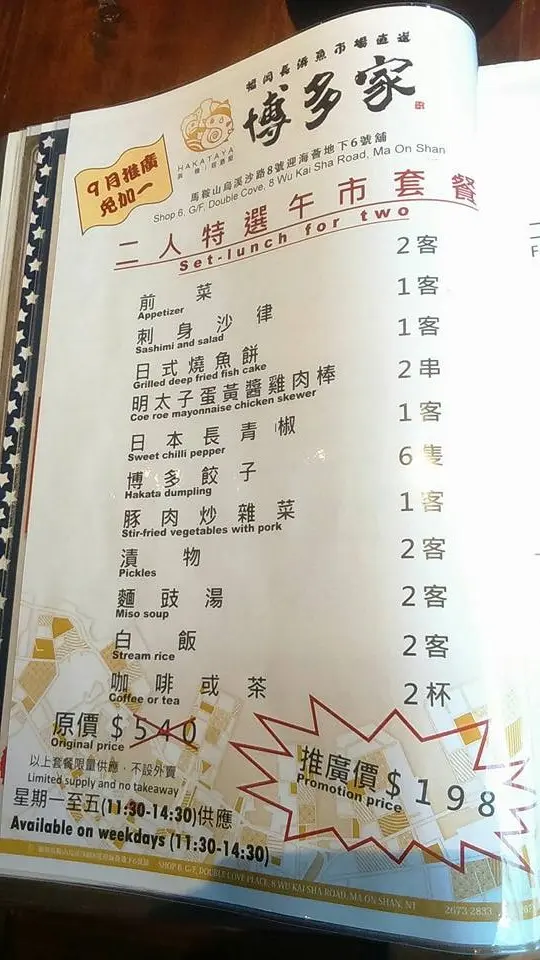 福岡長浜魚市場直送
博多家
HAKATAYA
9月推廣
免加一
馬鞍山烏溪沙路8號迎海薈地下6號舖
Shop 6, G/F, Double Cove, 8 Wu Kai Sha Road, Ma On Shan
二人特選午市套餐
Set-lunch for two
前菜 2客
Appetizer
刺身沙律 1客
Sashimi and salad
日式燒魚餅 1客
Grilled deep fried fish cake
明太子蛋黃醬雞肉棒 2串
Coe roe mayonnaise chicken skewer
日本長青椒 1客
Sweet chilli pepper
博多餃子 6隻
Hakata dumpling
豚肉炒雜菜 1客
Stir-fried vegetables with pork
漬物 2客
Pickles
麵豉湯 2客
Miso soup
白飯 2客
Stream rice
咖啡或茶 2杯
Coffee or tea
原價 $540
Original price
推廣價 $198
Promotion price
以上套餐限量供應，不設外賣
Limited supply and no takeaway
星期一至五(11:30-14:30)供應
Available on weekdays (11:30-14:30)
SHOP 6, G/F, DOUBLE LOVE PLACE, 8 WU KAI SHA ROAD, MA ON SHAN, NT
2673 2833